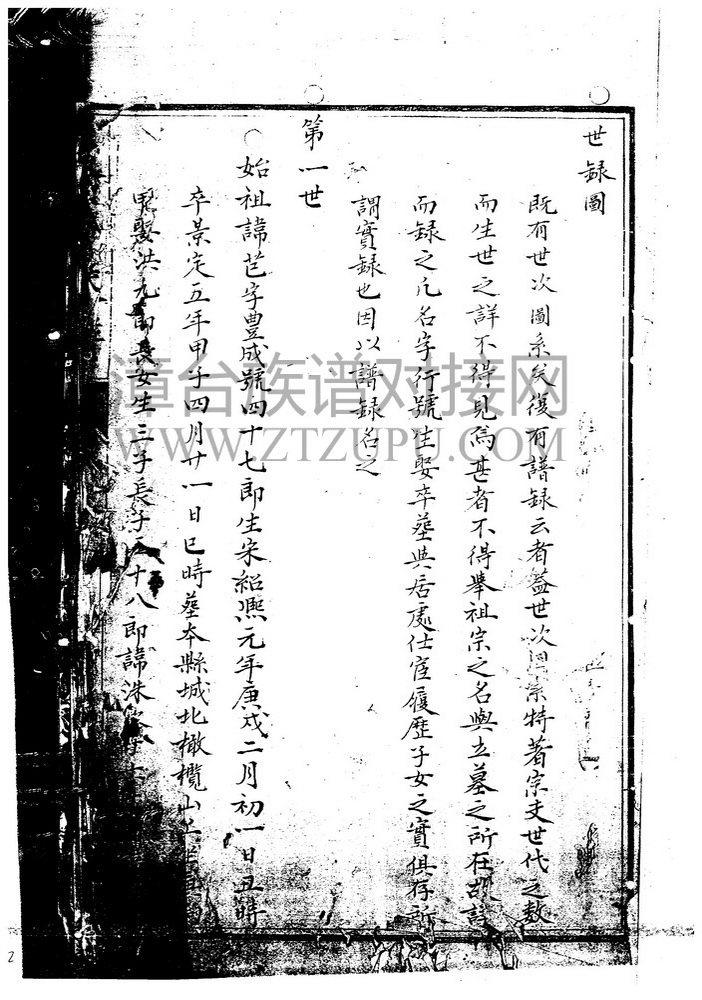 世録圖
既有世次圖系矣復有譜録云者葢世次圖系特著宗支世代之数
而生世之詳不得見焉甚者不得舉祖宗之名與立墓之所在故設
而録之凡名字行號生娶卒葬與居處仕宦履歷子女之實俱存所
謂實録也因以譜録名之
第一世
始祖諱芑字豊成號四十七郎生宋紹熈元年庚戌二月初一日丑時
卒景定五年甲子四月廿一日巳時葬本縣城北橄欖山
娶洪九郎長女生三子長子 十八郎諱洙
漳台族谱对接网
WWW.ZTZUPU.COM
2